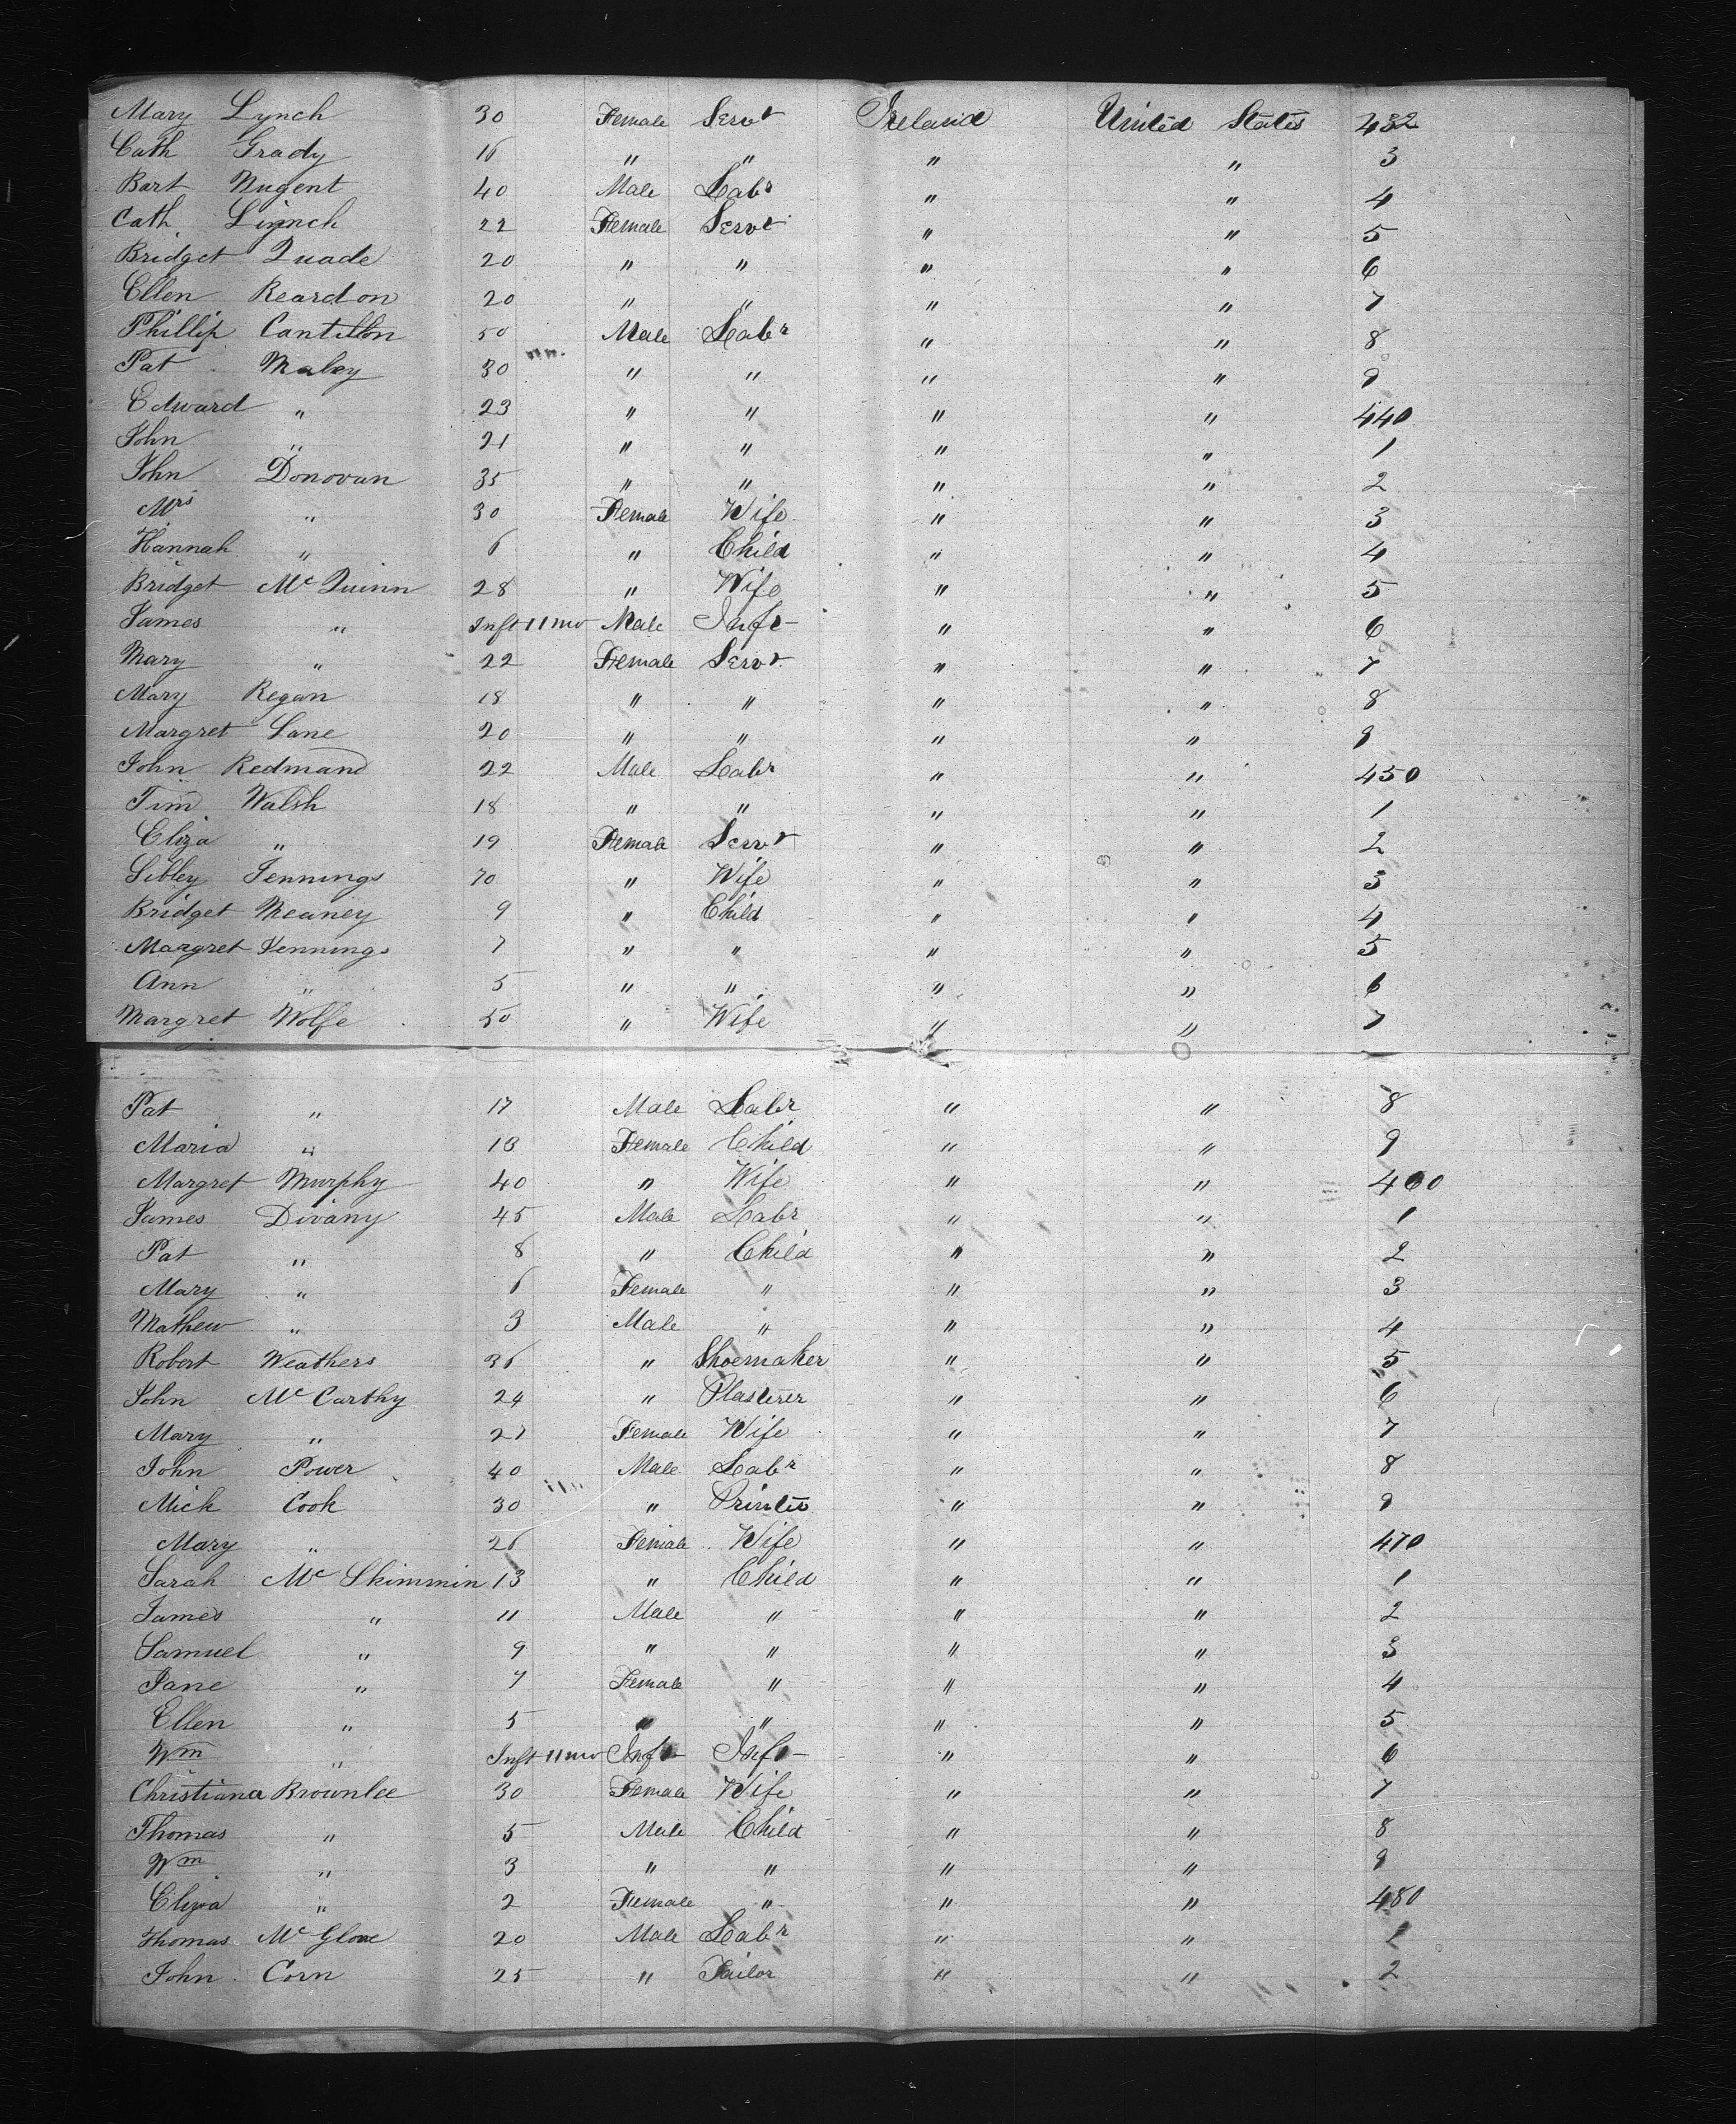 Mary Lynch 30 Female Servt Ireland United States 432
Cath Grady 16 " " " " 3
Bart Nugent 40 Male Labr " " 4
Cath Lynch 22 Female Servt " " 5
Bridget Quade 20 " " " " 6
Ellen Reardon 20 " " " " 7
Phillip Cantillon 50 Male Labr " " 8
Pat Maley 30 " " " " 9
Edward " 23 " " " " 440
John " 21 " " " " 1
John Donovan 35 " " " " 2
Mrs " 30 Female Wife " " 3
Hannah " 6 " Child " " 4
Bridget Mc Quinn 28 " Wife " " 5
James " Inft 11 mo Male Inft " " 6
Mary " 22 Female Servt " " 7
Mary Regan 18 " " " " 8
Margret Lane 20 " " " " 9
John Redmand 22 Male Labr " " 450
Tim Walsh 18 " " " " 1
Eliza " 19 Female Servt " " 2
Sibley Jennings 70 " Wife " " 3
Bridget Meaney 9 " Child " " 4
Margret Jennings 7 " " " " 5
Ann " 5 " " " " 6
Margret Wolfe 50 " Wife " " 7
Pat " 17 Male Labr " " 8
Maria " 13 Female Child " " 9
Margret Murphy 40 " Wife " " 460
James Divany 45 Male Labr " " 1
Pat " 8 " Child " " 2
Mary " 6 Female " " " 3
Mathew " 3 Male " " " 4
Robert Weathers 36 " Shoemaker " " 5
John Mc Carthy 24 " Plasterer " " 6
Mary " 27 Female Wife " " 7
John Power 40 Male Labr " " 8
Mick Cook 30 " Printer " " 9
Mary " 26 Female Wife " " 470
Sarah Mc Skimmin 13 " Child " " 1
James " 11 Male " " " 2
Samuel " 9 " " " " 3
Jane " 7 Female " " " 4
Ellen " 5 " " " " 5
Wm " Inft 11 mo Inft Inft " " 6
Christiana Brownlee 30 Female Wife " " 7
Thomas " 5 Male Child " " 8
Wm " 3 " " " " 9
Eliza " 2 Female " " " 480
Thomas Mc Glone 20 Male Labr " " 1
John Corn 25 " Tailor " " 2